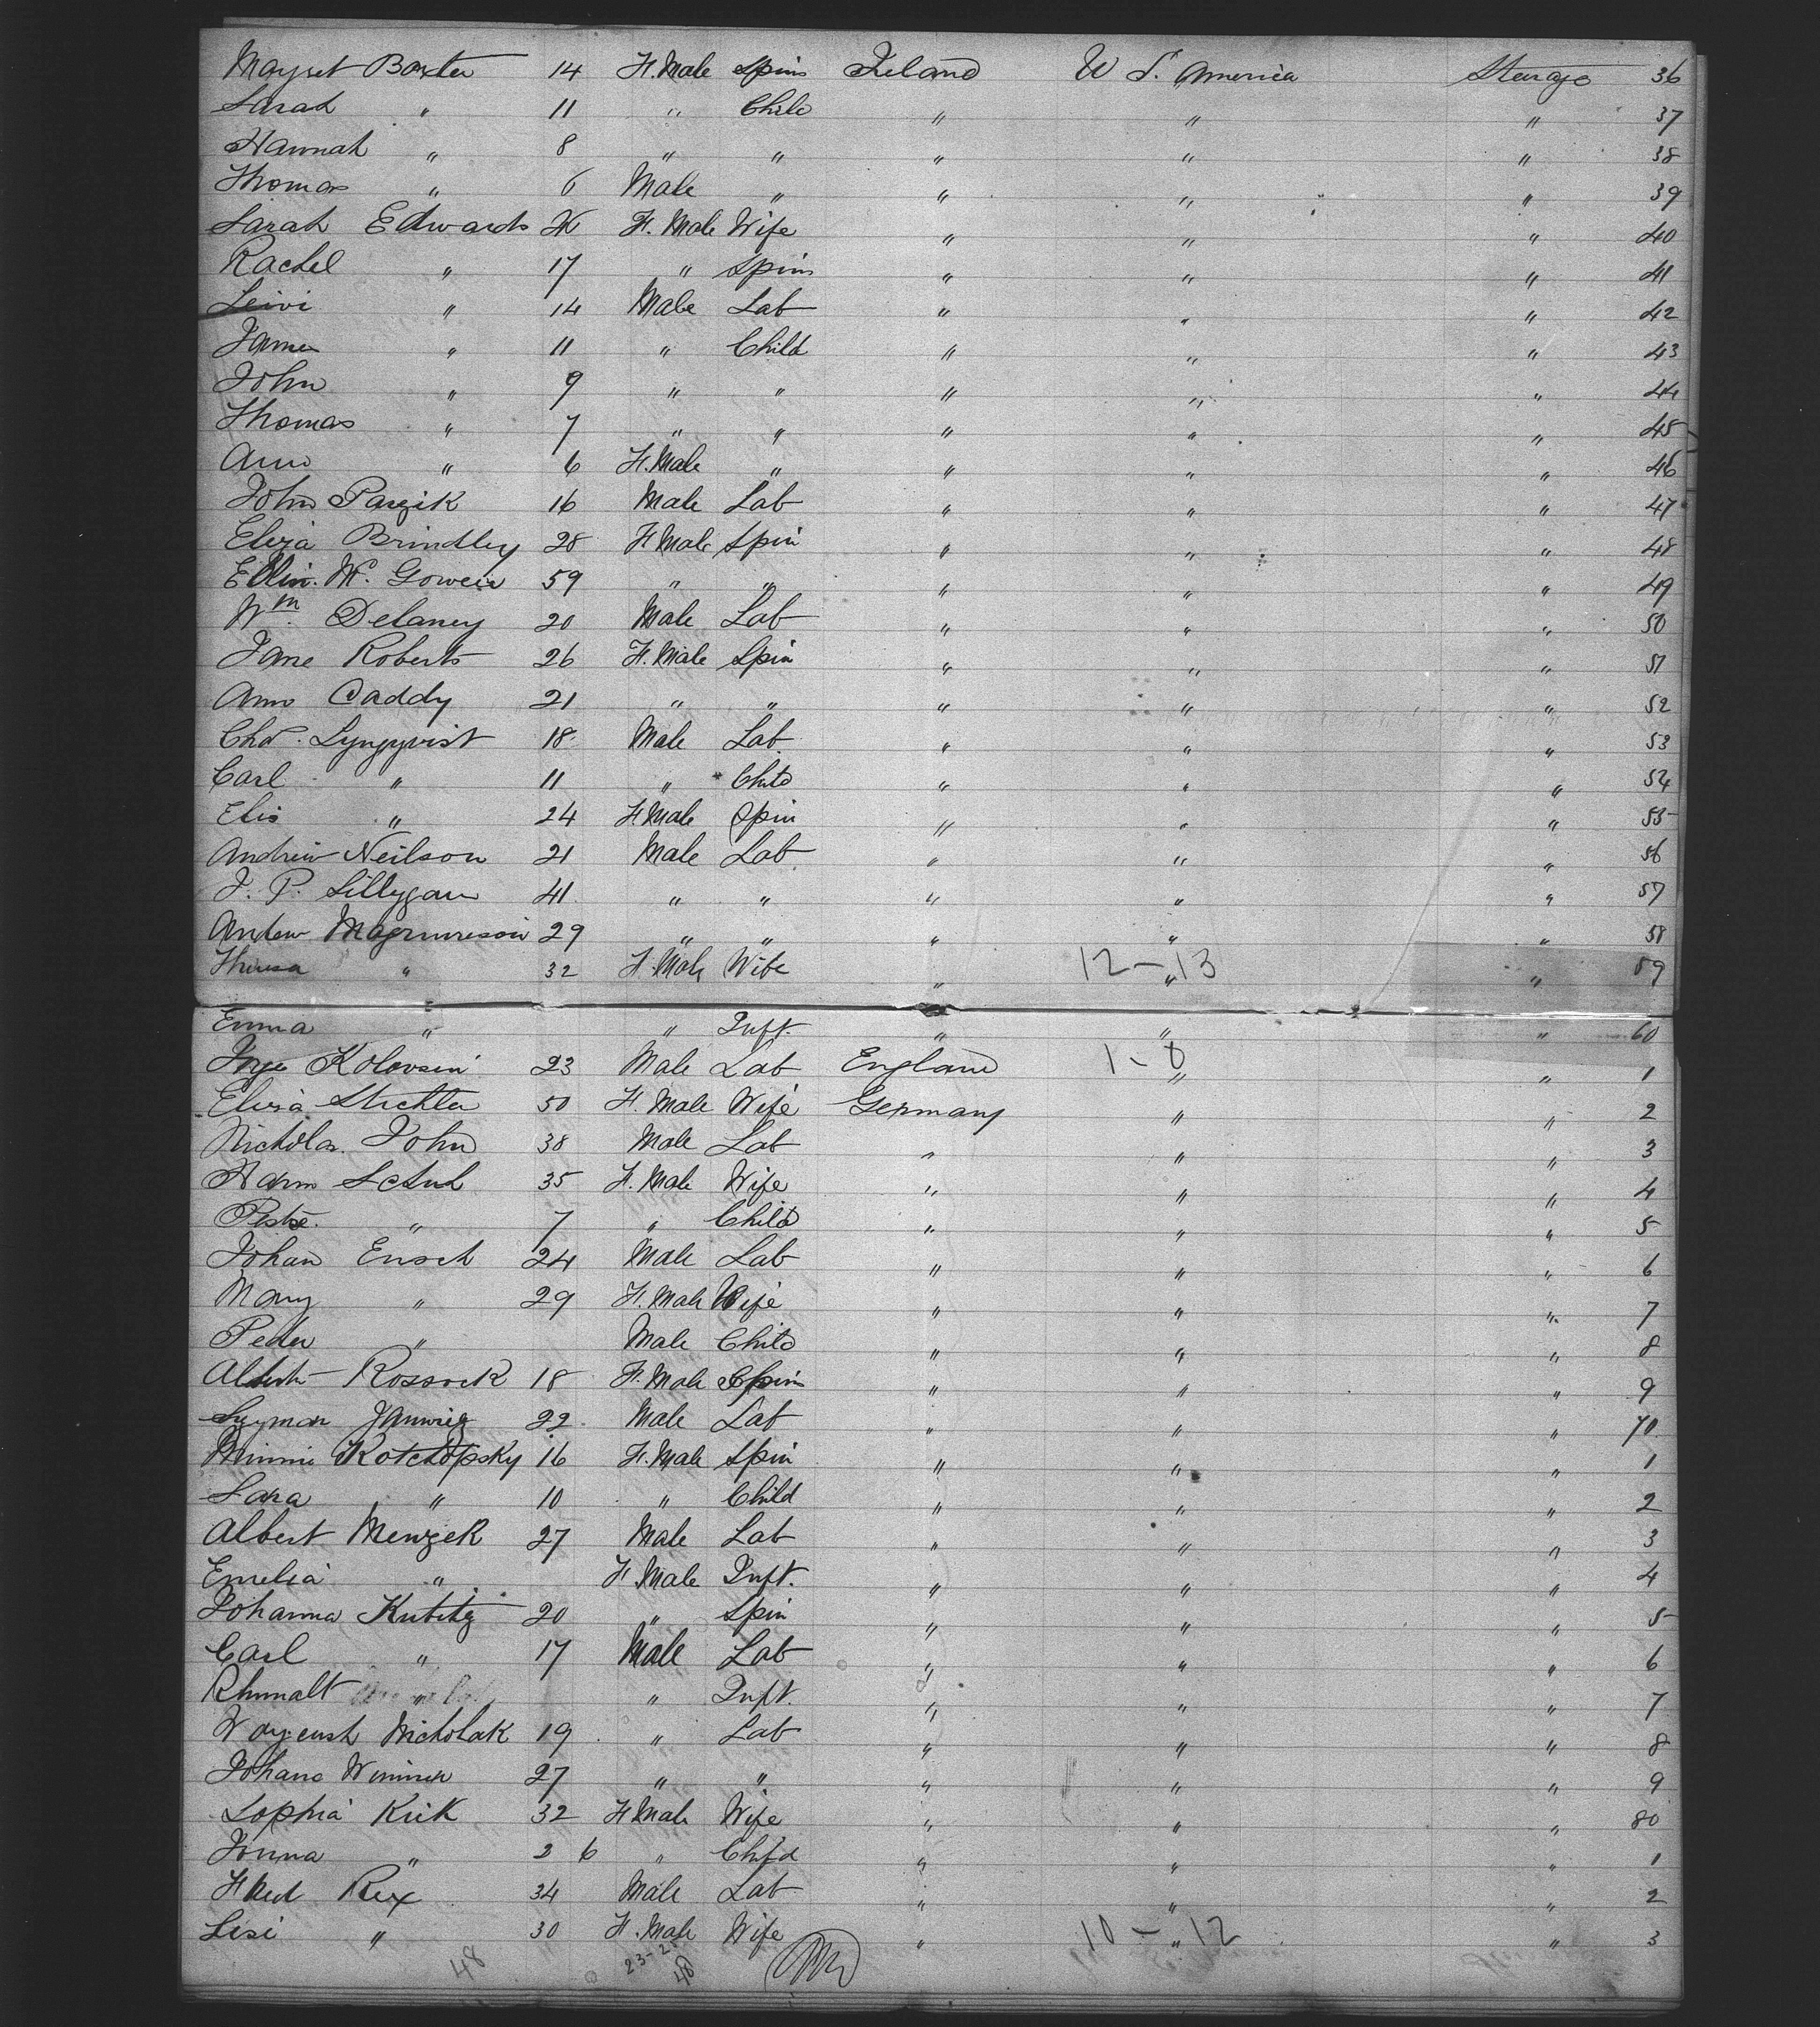 Margret Baxter 14 F.Male Spins Ireland U S. America Steerage 36
Sarah " 11 " Child " " " 37
Hannah " 8 " " " " " 38
Thomas " 6 Male " " " " 39
Sarah Edwards F.Male Wife " " " 40
Rachel " 17 " Spins " " " 41
Leivi " 14 Male Lab " " " 42
James " 11 " Child " " " 43
John " 9 " " " " " 44
Thomas " 7 " " " " " 45
Ann " 6 F.Male " " " " 46
John 16 Male Lab " " " 47
Eliza Brindley 28 F Male Spin " " " 48
Ellin. Mc. Gowen 59 " " " " " 49
Wm. Delaney 20 Male Lab " " " 50
Jane Roberts 26 F.Male Spin " " " 51
Ann Caddy 21 " " " " " 52
Chas. Lyngqvist 18 Male Lab " " " 53
Carl " 11 " Child " " " 54
Elis " 24 F Male Spin " " " 55
Andrew Neilson 21 Male Lab " " " 56
J. P. Lillygan 41 " " " " " 57
Andew 29 " " " " " 58
" 32 F.Male Wife " 12-13 " " 59
Emma " " Inft. " " " 60
Kolovsin 23 Male Lab England 1-8 " " 1
Eliza Stichter 50 F.Male Wife Germany " " 2
Nicholas. John 38 Male Lab " " " 3
Schuh 35 F.Male Wife " " " 4
" 7 " Child " " " 5
Johan Ensch 24 Male Lab " " " 6
Mary " 29 F.Male Wife " " " 7
Peder " Male Child " " " 8
Rossock 18 F.Male Spins " " " 9
Szyman 22 Male Lab " " " 70
Minnie Kotchopsky 16 F.Male Spin " " " 1
Sara " 10 " Child " " " 2
Albert Menzek 27 Male Lab " " " 3
Emelia " F.Male Inft. " " " 4
Johanna Kubitz 20 " Spin " " " 5
Carl " 17 Male Lab " " " 6
Rhunalt " " Inft. " " " 7
Nicholak 19 " Lab " " " 8
Johann 27 " " " " " 9
Sophia Krik 32 F Male Wife " " " 80
" 2 6 " Child " " " 1
Fred Rex 34 Male Lab " " " 2
Lisi " 30 F.Male Wife " 10-12 " " 3
48 23-25 48